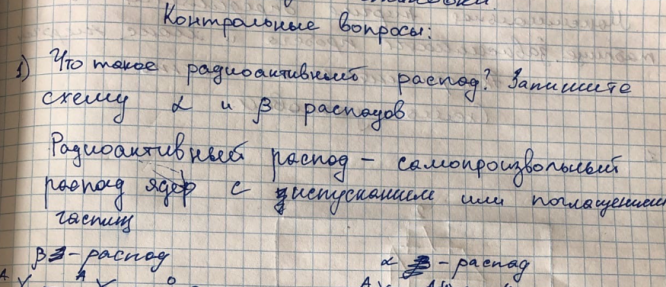 Контрольные вопросы:
1) Что такое радиоактивный распад? Запишите
схему α и β распадов
Радиоактивный распад – самопроизвольный
распад ядер с испусканием или поглащением
частиц
β-распад α-распад